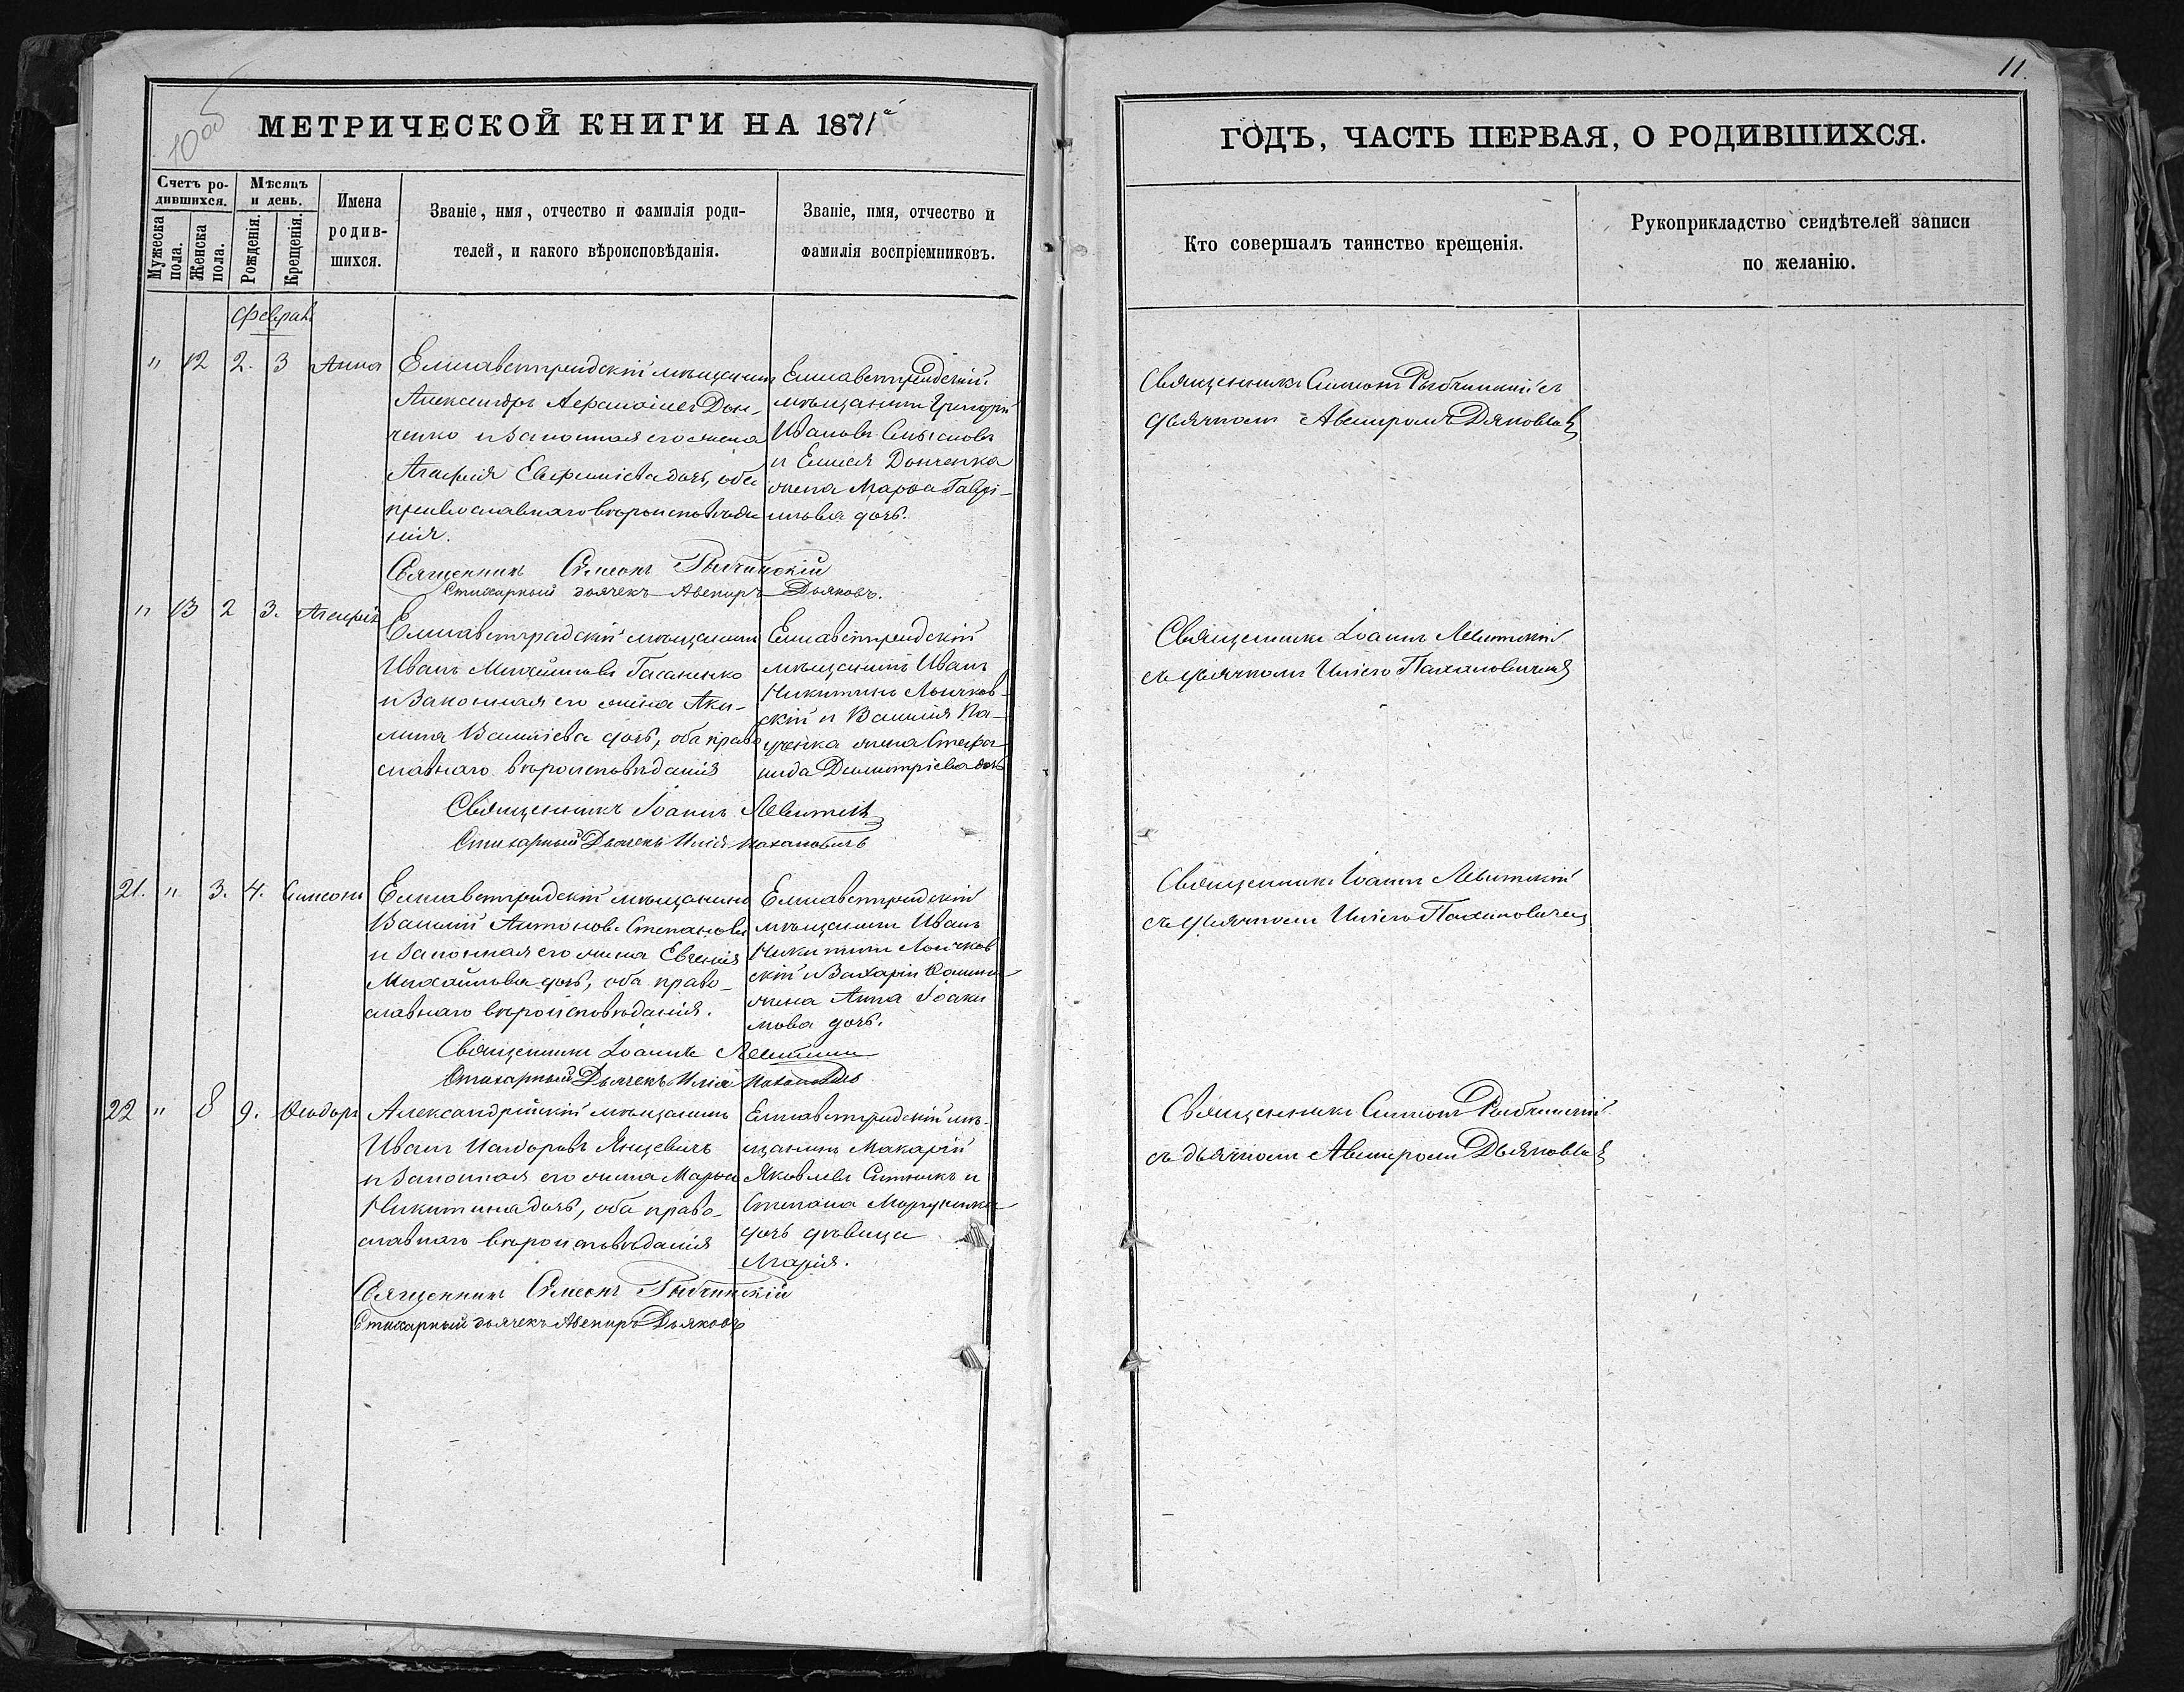 10 об
МЕТРИЧЕСКОЙ КНИГИ НА 1871й
Счетъ родившихся.
Мужеска пола.
Женска пола.
Мѣсяцъ и день.
Рожденія.
Крещенія.
Имена родив-
шихся.
Званіе, имя, отчество и фамилія роди-
телей, и какого вѣроисповѣданія.
Званіе, имя, отчество и
фамилія воспріемниковъ.
Февраль
" 12 2. 3 Анна
Елисаветградскій мѣщанинъ
Александръ Дон-
ченко и законная его жена
Агафія дочь, оба
православнаго вѣроисповѣда
нія.
Елисаветградскій
мѣщанинъ Григорій
Ивановъ
и Елисея Донченка
жена Марѳа Гаврі-
илова дочь.
Священникъ Симеонъ Рыбчинскій
Стихарный дьячекъ Авениръ Дьяковъ.
" 13 2 3. Агафія
Елисаветградскій мѣщанинъ
Иванъ Гасаненко
и законная его жена Аки-
лина Василіева дочь, оба право
славнаго вѣроисповѣданія
Елисаветградскій
мѣщанинъ Иванъ
Никитинъ Лончков-
скій и Василія
жена Стефа
нида Димитріева дочь
Священникъ Іоаннъ Левитскій
Стихарный Дьячекъ Илія Пахановичъ
21. " 3. 4. Симеонъ
Елисаветградскій мѣщанинъ
Василій Антоновъ Степановъ
и законная его жена Евгенія
Михайлова дочь, оба право-
славнаго вѣроисповѣданія.
Елисаветградскій
мѣщанинъ Иванъ
Никитинъ Лончков
скій и Захарія
жена Анна Іоаки
мова дочь.
Священникъ Іоаннъ Левитскій
Стихарный Дьячекъ Илія Пахановичъ
22 " 8 9. Ѳеодоръ
Александрійскій мѣщанинъ
Иванъ Янцевичъ
и законная его жена Марѳа
Никитина дочь, оба право-
славнаго вѣроисповѣданія
Елисаветградскій мѣ-
щанинъ Макарій
Яковлевъ Ситникъ и
Степана
дочь дѣвица
Марія.
Священникъ Симеонъ Рыбчинскій
Стихарный дьячекъ Авениръ Дьяковъ
11.
ГОДЪ, ЧАСТЬ ПЕРВАЯ, О РОДИВШИХСЯ.
Кто совершалъ таинство крещенія.
Рукоприкладство свидѣтелей записи
по желанію.
Священникъ Симеонъ Рыбчинскій съ
дьячкомъ Авениромъ Дяковымъ
Священникъ Іоаннъ Левитскій
съ дьячкомъ Иліею Пахановичемъ
Священникъ Іоаннъ Левитскій
съ дьячкомъ Иліею Пахановичемъ
Священникъ Симеонъ Рыбчинскій
съ дьячкомъ Авениромъ Дьяковымъ